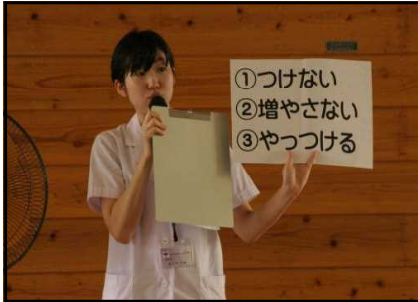 ①つけない
②増やさない
③やっつける